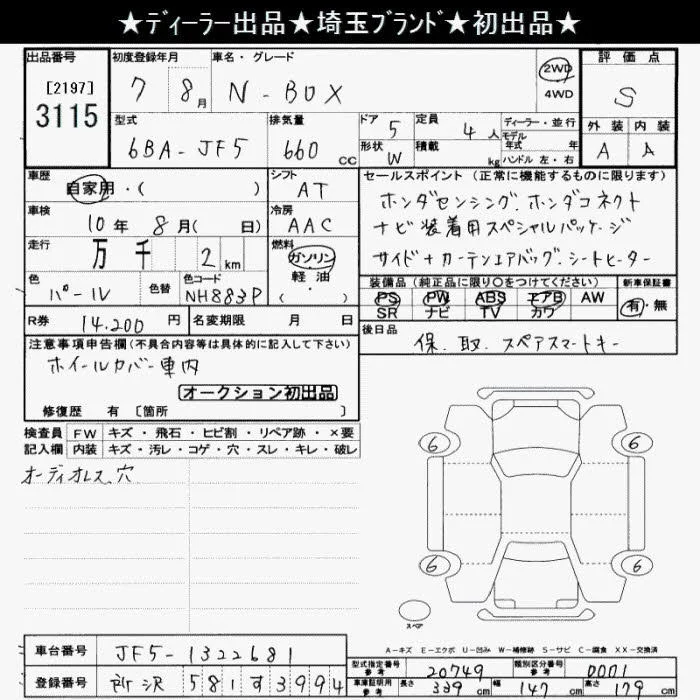 ★ディーラー出品★埼玉ブランド★初出品★
出品番号 初度登録年月 車名・グレード 評価点
[2197] 7 8月 N-BOX 2WD S
3115 4WD
型式 排気量 ドア 5 定員 4人 ディーラー・並行 外装 内装
6BA-JF5 660CC 形状 W 積載 kg モデル年式 年式 A A
ハンドル 左・右
車歴 シフト セールスポイント (正常に機能するものに限ります)
自家用・( ) AT ホンダセンシング.ホンダコネクト
車検 冷房 ナビ装着用スペシャルパッケージ
10年 8月( 日) AAC サイド+カーテンエアバッグ.シートヒーター
走行 万 千 2km 燃料 ガソリン
軽・油
・( )
色 色替 色コード 装備品 (純正品に限り〇をつけてください) 新車保証書
パール NH883P PS PW ABS エアB AW 有・無
SR ナビ TV カワ
R券 14.200円 名変期限 月 日 後日品 保.取.スペアスマートキー
注意事項申告欄(不具合内容等は具体的に記入して下さい)
ホイールカバー車内
オークション初出品
修復歴 有 〔箇所 〕
検査員 FW キズ・飛石・ヒビ割・リペア跡・×要
記入欄 内装 キズ・汚レ・コゲ・穴・スレ・キレ・破レ
オーディオレス.穴
6 6
6 6
スペア
A-キズ E-エクボ U-凹み W-補修跡 S-サビ C-腐食 XX-交換済
車台番号 JF5-1322681
登録番号 所沢 581 す 3994
型式指定番号 参考 20749 類別区分番号 参考 0001
車庫証明用 参考 長さ 339cm 幅 147cm 高さ 179cm